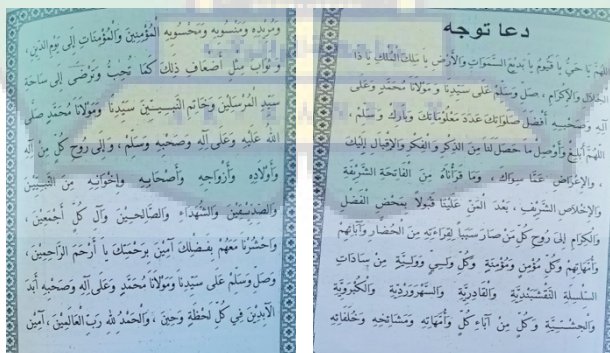 دعا توجه
اللهم يَا حَيُّ يَا قَيُّومُ يَا بَدِيعَ السَّمَوَاتِ وَالْأَرْضِ يَا مَلِكَ الْمُلْكِ يَا ذَا
الْجَلَالِ وَالْإِكْرَامِ ، صَلِّ وَسَلِّمْ عَلَى سَيِّدِنَا وَمَوْلَانَا مُحَمَّدٍ وَعَلَى
آلِهِ وَصَحْبِهِ أَفْضَلَ صَلَوَاتِكَ عَدَدَ مَعْلُومَاتِكَ وَبَارِكْ وَسَلِّمْ ،
اللَّهُمَّ أَبْلِغْ وَأَوْصِلْ مَا حَصَلَ لَنَا مِنَ الذِّكْرِ وَالْفِكْرِ وَالْإِقْبَالِ إِلَيْكَ
، وَالْإِعْرَاضِ عَمَّا سِوَاكَ ، وَمَا قَرَأْنَاهُ مِنَ الْفَاتِحَةِ الشَّرِيفَةِ
وَالْإِخْلَاصِ الشَّرِيفِ ، بَعْدَ الْمَنِّ عَلَيْنَا قَبُولًا بِمَحْضِ الْفَضْلِ
وَالْكِرَامِ إِلَى رُوحِ كُلِّ مَنْ صَارَ سَبَبًا لِقِرَاءَتِهِ مِنَ الْحُضَّارِ وَآبَائِهِمْ
وَأُمَّهَاتِهِمْ وَكُلِّ مُؤْمِنٍ وَمُؤْمِنَةٍ وَكُلِّ وَلِيٍّ وَوَلِيَّةٍ مِنْ سَادَاتِ
السِّلْسِلَةِ النَّقْشَبَنْدِيَّةِ وَالْقَادِرِيَّةِ وَالسُّهْرَوَرْدِيَّةِ وَالْكُبْرَوِيَّةِ
وَالْجِشْتِيَّةِ وَكُلٍّ مِنْ آبَاءِ كُلٍّ وَأُمَّهَاتِهِ وَمَشَائِخِهِ وَخُلَفَائِهِ
وَمُرِيدِهِ وَمَنْسُوبِهِ وَمَحْسُوبِهِ الْمُؤْمِنِينَ وَالْمُؤْمِنَاتِ إِلَى يَوْمِ الدِّينِ ،
وَثَوَابَ مِثْلِ أَضْعَافِ ذَلِكَ كَمَا تُحِبُّ وَتَرْضَى إِلَى سَاحَةِ
سَيِّدِ الْمُرْسَلِينَ وَخَاتِمِ النَّبِيِّينَ سَيِّدِنَا وَمَوْلَانَا مُحَمَّدٍ صَلَّى
اللهُ عَلَيْهِ وَعَلَى آلِهِ وَصَحْبِهِ وَسَلَّمْ ، وَإِلَى رُوحِ كُلٍّ مِنْ آلِهِ
وَأَوْلَادِهِ وَأَزْوَاجِهِ وَأَصْحَابِهِ وَإِخْوَانِهِ مِنَ النَّبِيِّينَ
وَالصِّدِّيقِينَ وَالشُّهَدَاءِ وَالصَّالِحِينَ وَآلِ كُلٍّ أَجْمَعِينَ ،
وَاحْشُرْنَا مَعَهُمْ بِفَضْلِكَ آمِينَ بِرَحْمَتِكَ يَا أَرْحَمَ الرَّاحِمِينَ ،
وَصَلِّ وَسَلِّمْ عَلَى سَيِّدِنَا وَمَوْلَانَا مُحَمَّدٍ وَعَلَى آلِهِ وَصَحْبِهِ أَبَدَ
الْآبِدِينَ فِي كُلِّ لَحْظَةٍ وَحِينٍ ، وَالْحَمْدُ لِلَّهِ رَبِّ الْعَالَمِينَ ، آمِينْ